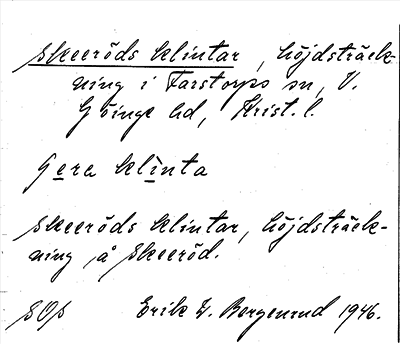 Skeeröds klintar, höjdsträck-
ning i Farstorps sn, V.
Göinge hd, Krist. l.
gera klinta
Skeeröds klintar, höjdsträck-
ning å Skeeröd.
SOS Erik Z. Bergenrud 1946.